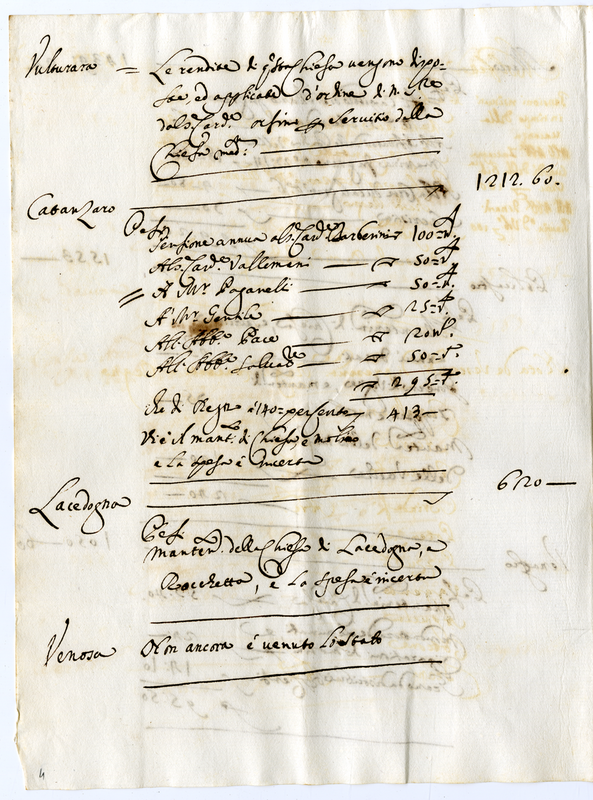 Vulturara = Le rendite di q.sta Chiesa vengono dispo-
ste, ed applicate d'ordine di N. S.re
dal S. Card.e Orsino p servitio della
Chiesa med.a
Catanzaro 1212. 60.
Pesi
Pensione annua al S. Card.e Barberini 100=
Al S. Card.e Vallemani 50=
A Mr. Paganelli 50=
A Mr. Gentile 25=
All' Abb.e Pace 20
All' Abb.e 50=
295=
che di Regn. a 140 = per cento 413—
Vi è il mant. di Chiesa, e mobili
e la spesa è incerta
Lacedogna 620—
Pesi
Manten. della Chiesa di Lacedogna, e
Rocchetta, e la spesa è incerta
Venosa Non ancora è venuto lo stato
4